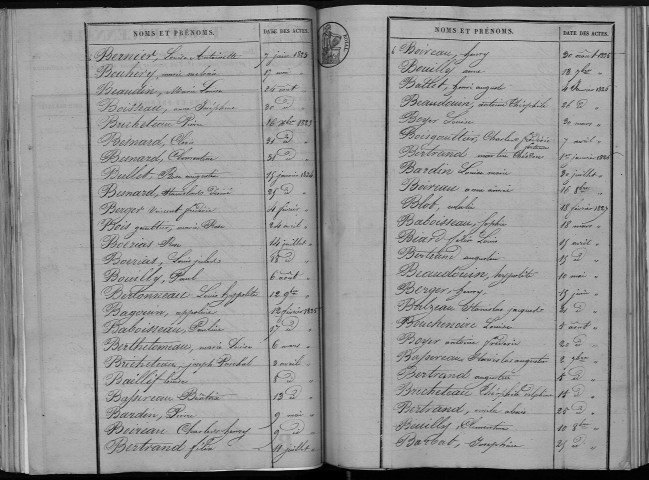 NOMS ET PRÉNOMS. DATE DES ACTES.
Bernier, Louise Antoinette 7 juin 1823
Bouhery, marie 17 mai "
Beaudin, Marie Louise 24 août "
Boisseau, Joséphine 30 d° "
Bricheteau Pierre 1823
Besnard, Clovis 31 d° "
Besnard, Clementine 31 d° "
Bullet, Augustin 15 janvier 1824
Besnard, Stanislas Désiré 25 d° "
Berger Vincent frédéric 4 février "
Bois gaultier, marie Rose 24 avril "
Boireau Rose 14 juillet "
Boireau, Louis jules d° "
Bouilly, Paul 6 août "
Bretonneau Louis hyppolite 12 9bre "
Bagourn, appoline 12 février 1825
Baboisseau, Pauline 17 d° "
Berthelomeau, marie Louise 6 mars "
Bricheteau, joseph 2 avril "
Baillif Louise 5 d° "
Bapireau Béatrix 13 d° "
Bardin, Pierre 9 mai "
Boireau Charles henry 9 d° "
Bertrand félix 11 juillet "
NOMS ET PRÉNOMS. DATE DES ACTES.
Boireau, henry 30 août 1825
Bouilly, anne 18 9bre "
Ballet, henri auguste 4 février 1826
Beaudouin, antoine théophile 26 d° "
Boyer Louise 30 mars "
Boisgaultier, Charles frédéric 7 avril "
Bertrand, martin 1er janvier 1826
Bardin Louise marie 30 juillet "
Boireau anne aimée 16 8bre "
Blot, adèle 18 février 1827
Baboisseau, sophie 18 mars "
Béard félix Louis 15 avril "
Bertrand augustin 15 d° "
Beaudouin, hyppolite 10 mai "
Berger, henry, 15 juin "
Balzeau Stanislas jacques 21 d° "
Bouchenoire Louise 5 août "
Boyer antoine frédéric 20 d° "
Bapireau, Stanislas auguste 2 9bre "
Bertrand augustin 5 d° "
Bricheteau Théophile delphin 15 d° "
Bertrand, 25 d° "
Bouilly, Clementine 10 8bre "
Barbot, Joséphine 25 d° "